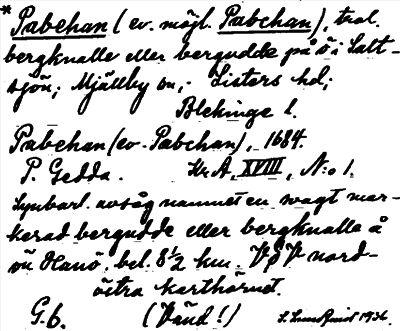 * Pabehan (ev. möjl. Pabchan), trol.
bergknalle eller bergudde på ö i Salt-
sjön; Mjällby sn,. Listers hd;
Blekinge l.
Pabehan (ev. Pabchan), 1684.
P. Gedda. Kr.A, XVIII, N:o 1.
Synbarl. avsåg namnet en svagt mar-
kerad bergudde eller bergknalle å
ön Hanö, bel. 8½ km. VSV nord-
östra karthörnet.
G.6. (Vänd!) 1936.